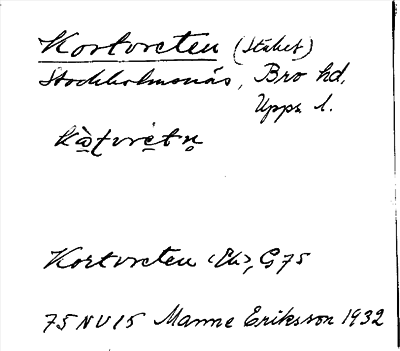 Kortvreten (Stäket)
Stockholmsnäs, Bro hd.
Upps. l.
Kortvreten (Ek), G 75
75 NV 15 Manne Eriksson 1932